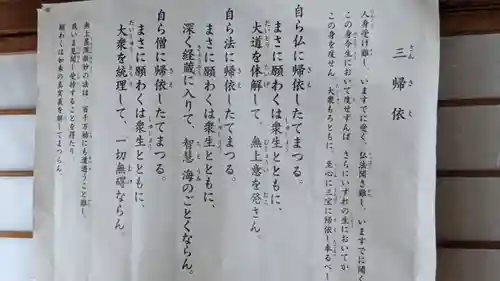 三帰依
人身受け難し、いますでに受く。仏法聞き難し、いますでに聞く
この身今生において度せずんば、さらにいずれの生においてか
この身を度せん。大衆もろともに、至心に三宝に帰依し奉るべし
自ら仏に帰依したてまつる。
まさに願わくは衆生とともに、
大道を体解して、無上意を発さん。
自ら法に帰依したてまつる。
まさに願わくは衆生とともに、
深く経蔵に入りて、智慧海のごとくならん。
自ら僧に帰依したてまつる。
まさに願わくは衆生とともに、
大衆を統理して、一切無碍ならん。
無上甚深微妙の法は、百千万劫にも遭遇うこと難し、
我いま見聞し受持することを得たり
願わくは如来の真実義を解してまつらん。